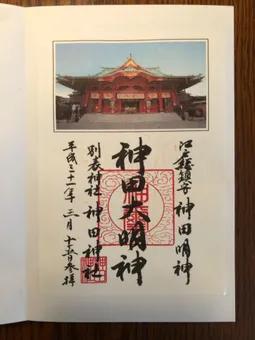 江戸総鎮守 神田明神
神田大明神
別表神社 神田神社
平成三十一年 三月 十 日参拝